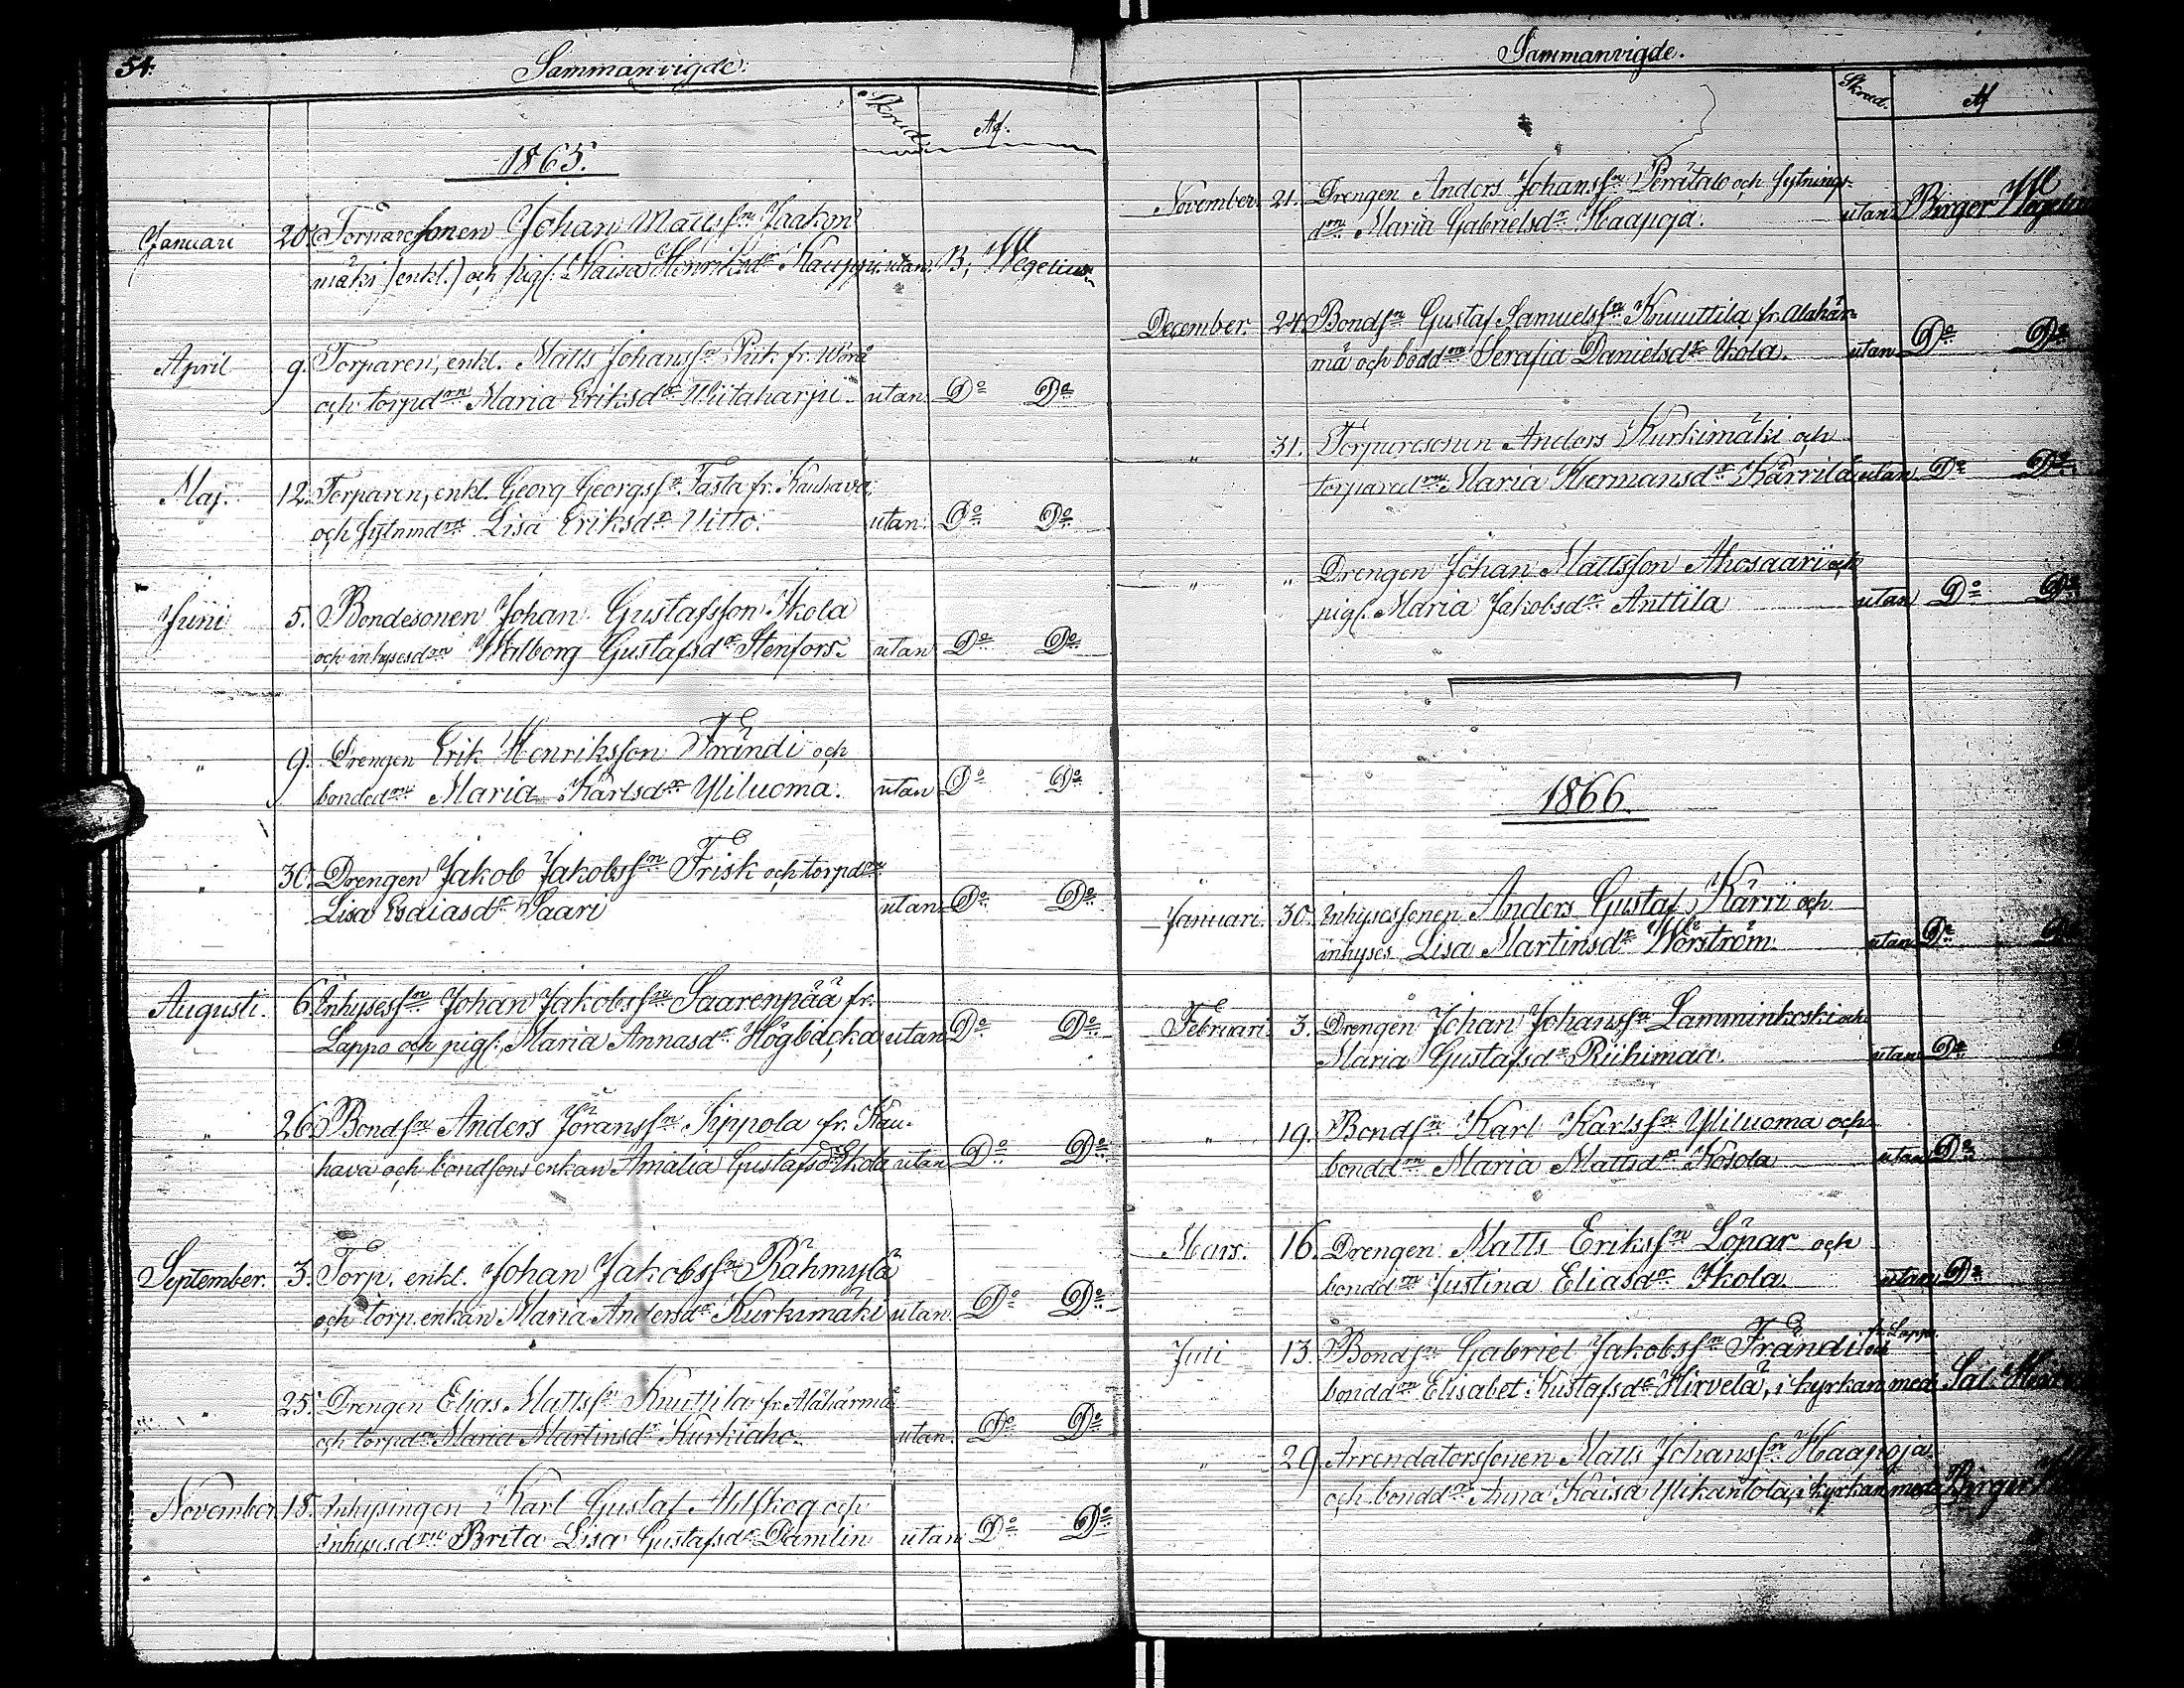 54.
Sammanvigde.
Skrud. Af.
1865.
Januari 20. Torparesonen Johan Mattssn Jaakon
mäki (enkl.) och pig. Kaisa Henriksdr Kauppi. utan. B. Wegelius
April 9. Torparen, enkl. Matts Johanssn Puk fr. Wörå
och torpdrn Maria Eriksdr Wiitaharju utan Do Do
Maj. 12. Torparen, enkl. Georg Georgssn Tasta fr. Kauhava
och sytnmdrn Lisa Eriksdr Uitto. utan. Do Do
Juni 5. Bondesonen Johan Gustafsson Ikola
och inhysesdrn Walborg Gustafsdr Stenfors utan Do Do
" 9. Drengen Erik Henriksson Frändi och
bonddrn Maria Karlsdr Yliluoma. utan Do Do
" 30. Drengen Jakob Jakobssn Frisk och torpdrn
Lisa Esaiasdr Saari utan Do Do
Augusti. 6. Inhysessn Johan Jakobssn Saarenpää fr.
Lappo och pig. Maria Annasdr Högbacka utan Do Do
" 26. Bondsn Anders Jöranssn Sippola fr. Kau-
hava och bondsons enkan Amalia Gustafsdr Ekola utan Do Do
September. 3. Torp. enkl. Johan Jakobssn Rahmyla
och torp. enkan Maria Andersdr Kurkimäki utan. Do Do
" 25. Drengen Elias Mattssn Knuttila fr. Alahärmä
och torpdrn Maria Martinsdr Kurkiaho. utan. Do Do
November 18. Inhysingen Karl Gustaf Ahlskog och
inhysesdrn Brita Lisa Gustafsdr Damlin utan Do Do
Sammanvigde.
Skrud. Af
November 21. Drengen Anders Johanssn Perätalo och sytnings-
drn Maria Gabrielsdr Haapoja. utan Birger Wegelius
December. 24. Bondsn Gustaf Samuelssn Knuuttila fr. Alahär-
mä och bonddrn Serafia Danielsdr Ikola. utan Do Do
" 31. Torparesonen Anders Kurkimäki och
torparedrn Maria Hermansdr Kärrilä utan Do Do
" " Drengen Johan Mattsson Ahosaari och
pig. Maria Jakobsdr Anttila utan Do Do
1866.
Januari. 30. Inhysessonen Anders Gustaf Kärri och
inhyses Lisa Martinsdr Wörström. utan Do Do
Februari 3. Drengen Johan Johanssn Lamminkoski och
Maria Gustafsdr Riihimaa. utan Do D
" 19. Bondsn Karl Karlssn Yliluoma och
bonddrn Maria Mattsdr Kosola utan Do
Mars. 16. Drengen Matts Erikssn Löpar och
bonddrn Justina Eliasdr Ikola utan Do
Juli 13. Bondsn Gabriel Jakobssn Frändi fr. Lappo och
bonddrn Elisabet Kustafsdr Hirvelä, i kyrkan med Sal.
" 29. Arrendatorssonen Matts Johanssn Haapoja
och bonddrn Anna Kaisa Ylikantola, i kyrkan med Birger